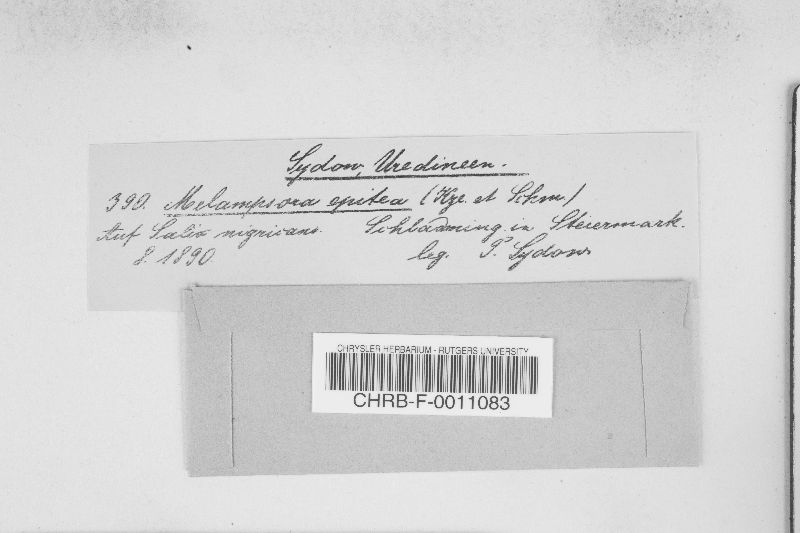 Sydow, Uredineen.
390. Melampsora epitea (Kze. et Schm.)
Auf Salix nigricans. Schladming in Steiermark.
8. 1890. leg. P. Sydow.
CHRYSLER HERBARIUM - RUTGERS UNIVERSITY
CHRB-F-0011083